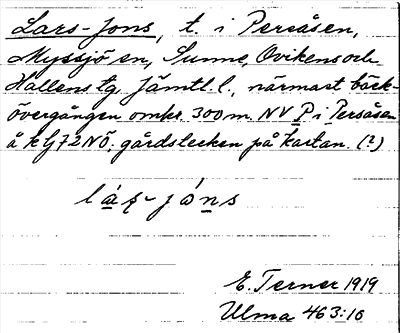 Lars-Jons, t. i Persåsen,
Myssjö sn, Sunne, Ovikens och
Hallens tg, Jämtl. l., närmast bäck-
övergången omkr. 300 m. NV P i Persåsen
å k G72NÖ. gårdstecken på kartan. (?)
lás-jóns
E. Terner 1919
Ulma 463:16